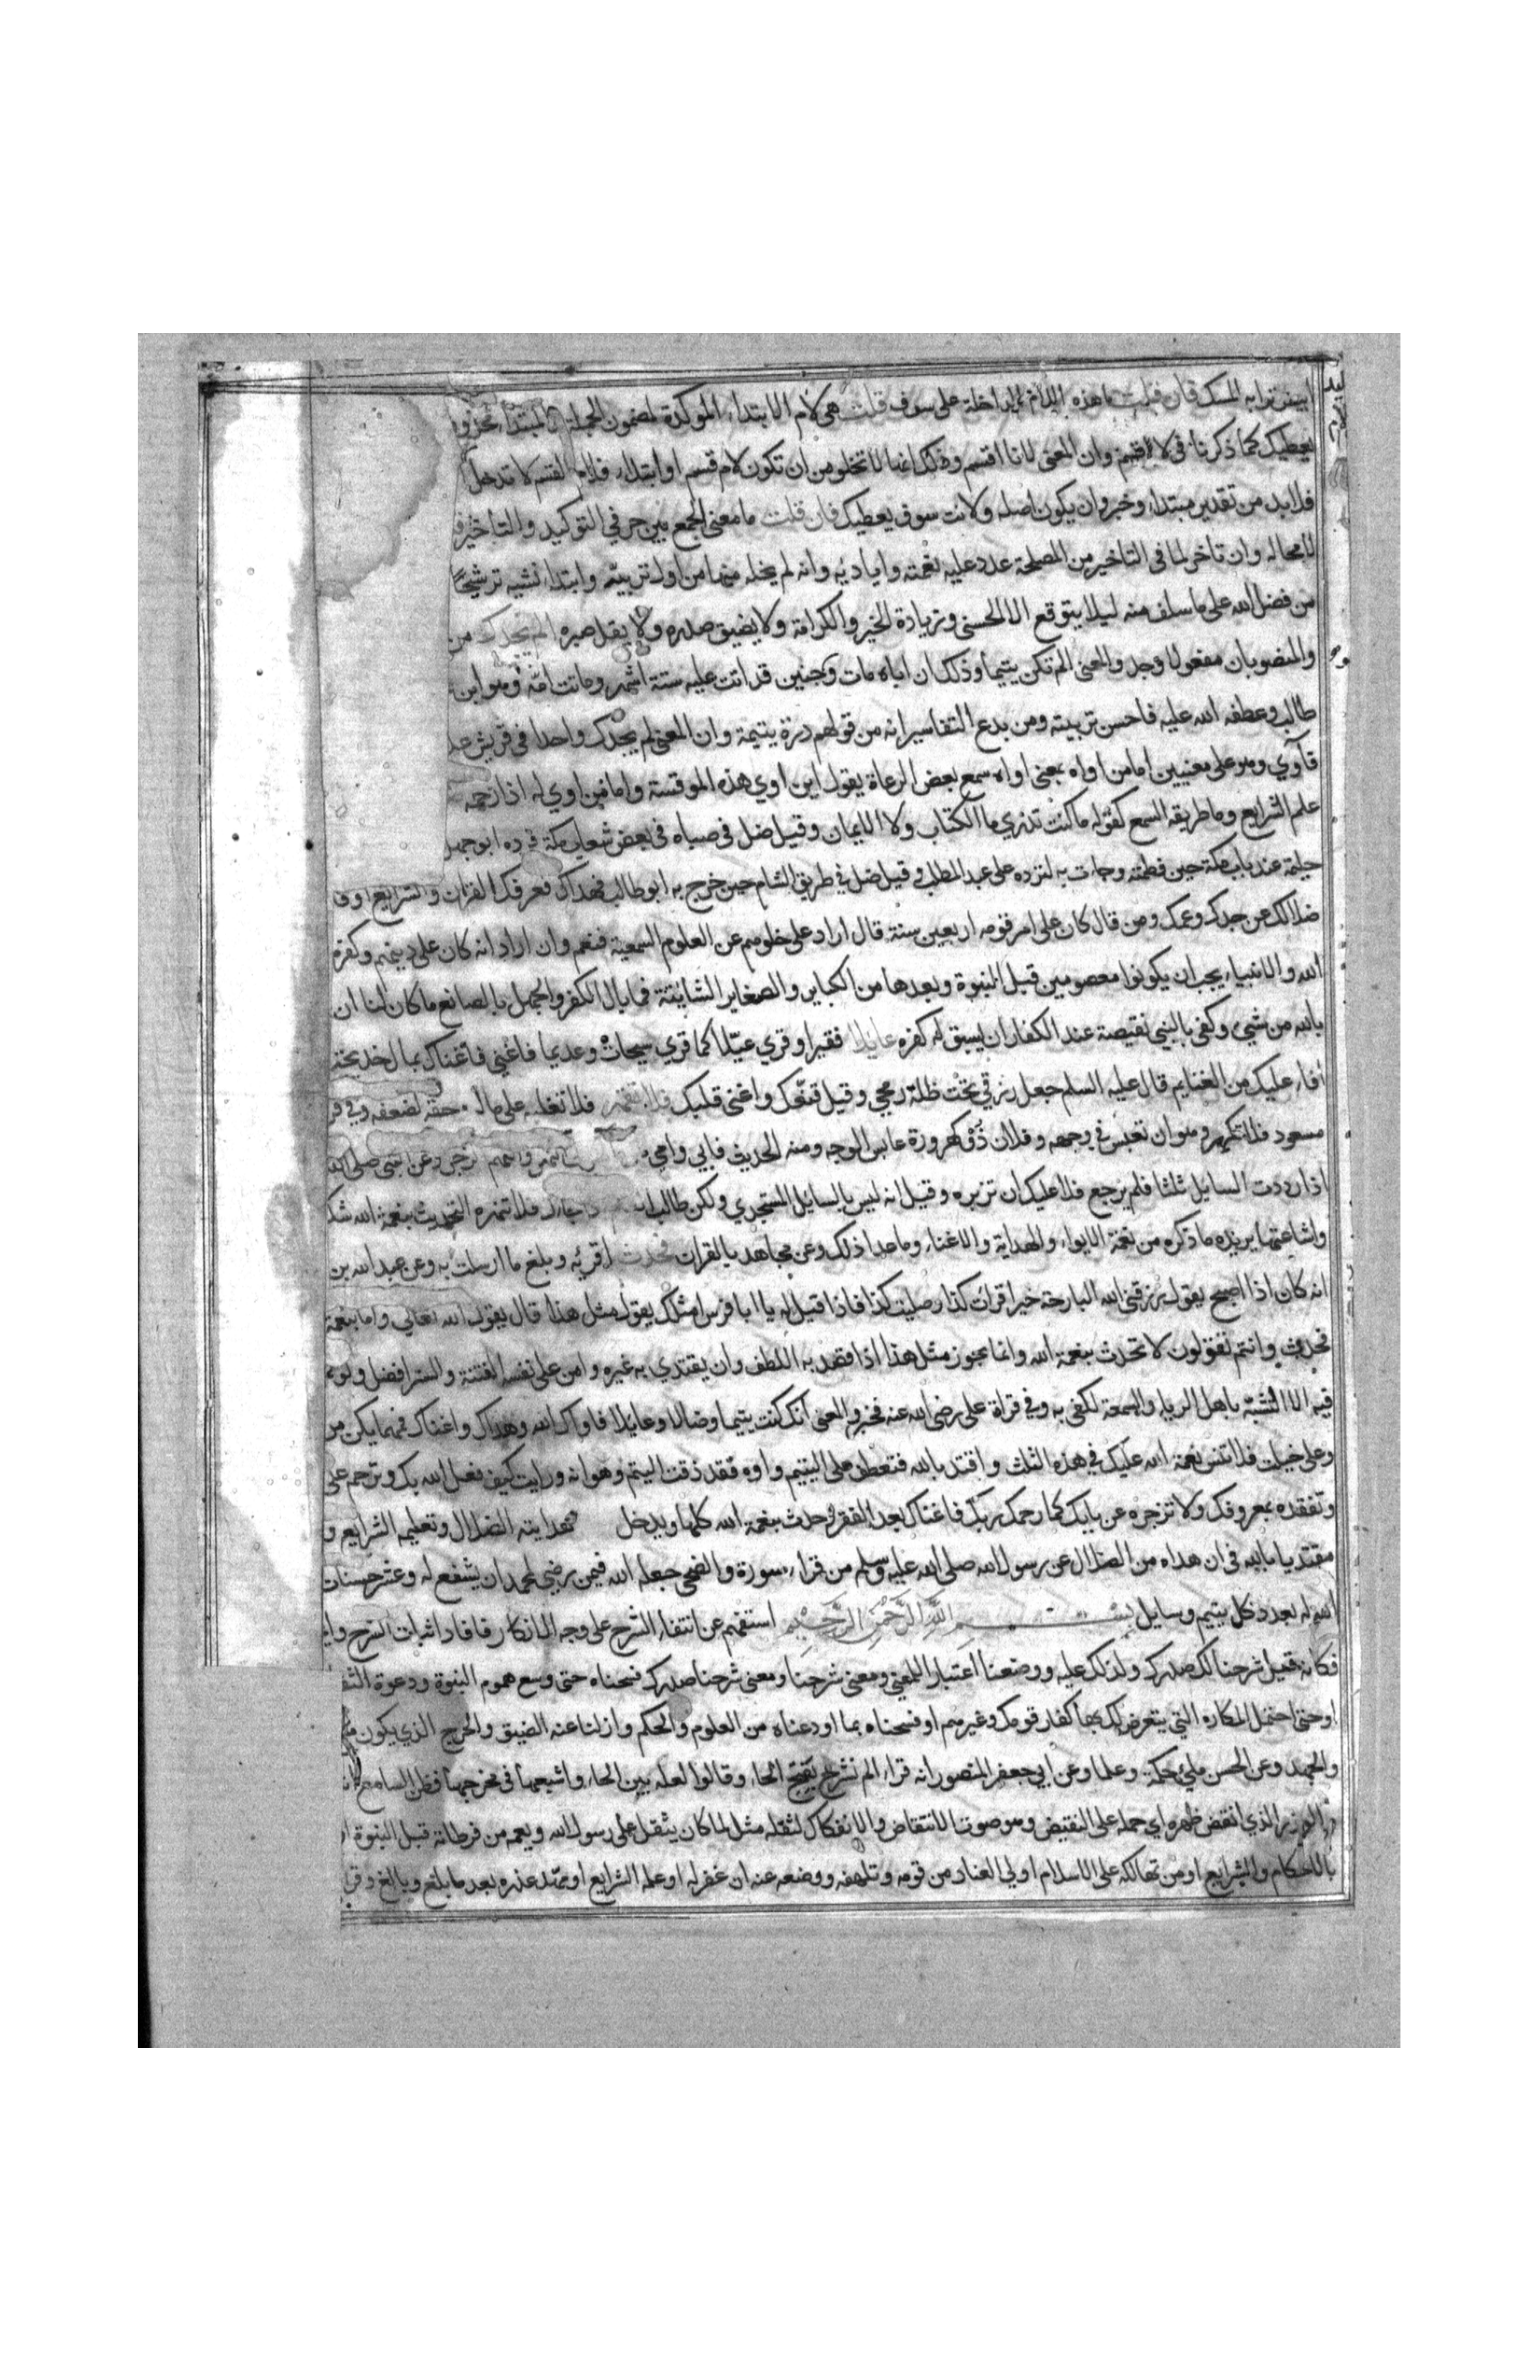 ابيض ترابه المسك فان قلت ما هذه اللام الداخلة على سوف قلت هي لام الابتداء الموكدة لمضمون الجملة والمبتداء محذوف
يعطيك كما ذكرنا في لا اقسم وان المعنى لانا اقسم وذلك انها لا تخلو من ان تكون لام قسم او ابتداء فلام القسم لا تدخل
فلا بد من تقدير مبتداء وخبر وان يكون اصله ولانت سوف يعطيك فان قلت ما معنى الجمع بين حرفي التوكيد والتاخير
لا محاله وان تاخر لما في التاخير من المصلحة عدد عليه نعمته واياديه وانه لم يخله منها من اول تربيته وابتداء نشيه ترشيحا
من فضل الله على ما سلف منه ليلا يتوقع الا الحسنى وزيادة الخير والكرامة ولا يضيق صدره ولا يقل صبره الم يجدك من
والمنصوبان مفعولا وجد والمعنى الم تكن يتيما وذلك ان اباه مات وجنين قد اتت عليه ستة اشهر وماتت امه وهو ابن
طالب وعطفه الله عليه فاحسن تربيته ومن بدع التفاسير انه من قولهم درة يتيمة وان المعنى لم يجدك واحدا في قريش
فآوي وهو على معنيين اما من اواه بمعنى اواه سمع بعض الرعاة يقول اين اوي هذه الموقسة واما من اوي له اذا رحمه
علم الشرايع وما طريقه السمع كقوله ما كنت تدري ما الكتاب ولا الايمان وقيل ضل في صباه في بعض شعاب مكة فرده ابو جهل
حليمة عند باب مكة حين فطمته وجاءت به لترده على عبد المطلب وقيل ضل في طريق الشام حين خرج به ابو طالب فهداك فعرفك القران والشرايع او
ضلالك عن جدك وعمك ومن قال كان على امر قومه اربعين سنة قال اراد على خلوهم عن العلوم السمعية فنعم وان اراد انه كان على دينهم وكفرهم
الله والانبياء يجب ان يكونوا معصومين قبل النبوة وبعدها من الكباير والصغاير الشاينة فما بال الكفر والجهل بالصانع ما كان لنا ان
بالله من شيء وكفى بالنبي نقيصة عند الكفار ان يسبق له كفره عايلا فقيرا وقري عيلا كما قري سيحات وعديما فاغني فاغناك بمال خديجة
افاء عليك من الغنايم قال عليه السلم جعل رزقي تحت ظلة رمحي وقيل قنعك واغنى قلبك فلا تقهر فلا تغلبه على ماله حقه لضعفه وفي
مسعود فلا تكهر وهو ان تعبس في وجهه وفلان ذو كهرورة عابس الوجه ومنه الحديث فبابي وامي
اذا رددت السايل ثلثا فلم يرجع فلا عليك ان تزبره وقيل انه ليس بالسايل المستجدي ولكن طالب فلا تنهره التحديث بنعمة الله شكر
واشاعتها يريد ما ذكره من نعمة الايواء والهداية والاغناء وما عدا ذلك وعن مجاهد بالقران فحدث اقريه وبلغ ما ارسلت به وعن عبد الله بن
انه كان اذا اصبح يقول رزقني الله البارحة خيرا قرات كذا وصليت كذا فاذا قيل له يا ابا فراس مثلك يقول مثل هذا قال يقول الله تعالى واما بنعمة
فحدث وانتم تقولون لا تحدث بنعمة الله وانما يجوز مثل هذا اذا قصد به اللطف وان يقتدي به غيره وامن على نفسه الفتنة والستر افضل ولو
فيه الا التشبه باهل الرياء والسمعة لكفى به وفي قراة على رضي الله عنه فخبر والمعنى انك كنت يتيما وضالا وعايلا فاواك الله وهداك واغناك فمهما يكن من
وعلى خيلت فلا تنس نعمة الله عليك في هذه الثلث واقتد بالله فتعطف على اليتيم واوه فقد ذقت اليتم وهوانه ورايت كيف فعل الله بك وترحم على
وتفقده بمعروفك ولا تزجره عن بابك كما رحمك ربك فاغناك بعد الفقر وحدث بنعمة الله كلها ويدخل تحته هدايته الضلال وتعليمه الشرايع و
مقتديا بالله في ان هداه من الضلال عن رسول الله صلى الله عليه وسلم من قراء سورة والضحى جعله الله فيمن رضي لمحمد ان يشفع له وعشر حسنات
الله له بعدد كل يتيم وسايل بسم الله الرحمن الرحيم استفهم عن انتفاء الشرح على وجه الانكار فافاد اثبات الشرح
فكانه قيل شرحنا لك صدرك ولذلك عليه ووضعنا اعتبارا للمعنى ومعنى شرحنا ومعنى شرحنا صدرك فسحناه حتى وسع هموم النبوة ودعوة
او حتى احتمل المكاره التي يتعرض لك بها كفار قومك وغيرهم او فسحناه بما اودعناه من العلوم والحكم وازلنا عنه الضيق والحرج الذي يكون
والجهل وعن الحسن ملئ حكمة وعلما وعن ابي جعفر المنصور انه قراء الم نشرح بفتح الحاء وقالوا لعله بين الحاء واشبعها في مخرجها فظن السامع
والوزر الذي انقض ظهره اي حمله على النقيض وهو صوت الانتقاض والانفكاك لثقله مثل لما كان يثقل على رسول الله ويغمه من فرطاته قبل النبوة
بالاحكام والشرايع او من تهالكه على الاسلام اولي العناد من قومه وتلهفه ووضعه عنه ان غفر له او علم الشرايع او مهد عذره بعد ما بلغ وبالغ وقري